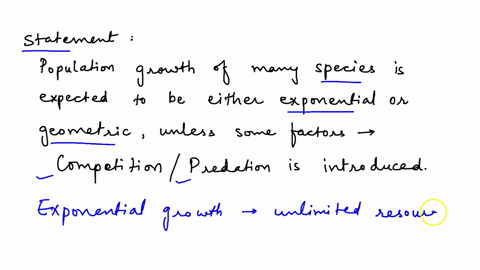 Statement :
Population growth of many species is
expected to be either exponential or
geometric, unless some factors →
Competition / Predation is introduced.
Exponential growth → unlimited resour